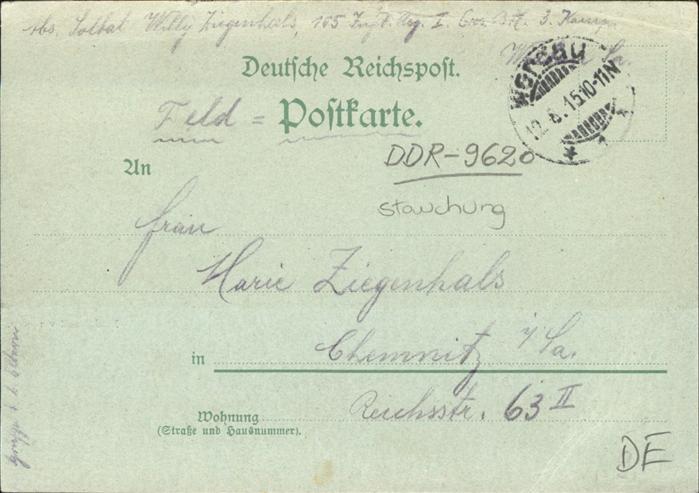 Abs. Soldat Willy Ziegenhals, 105 Inft. Reg. I. Ers. Btl. 3. Komp.
Deutsche Reichspost.
Feld = Postkarte.
Wurzen
12.6.15 10-11N
An
DDR-9620
stauchung
Frau
Marie Ziegenhals
in Chemnitz i/Sa.
Reichsstr. 63 II
Wohnung
(Straße und Hausnummer).
DE